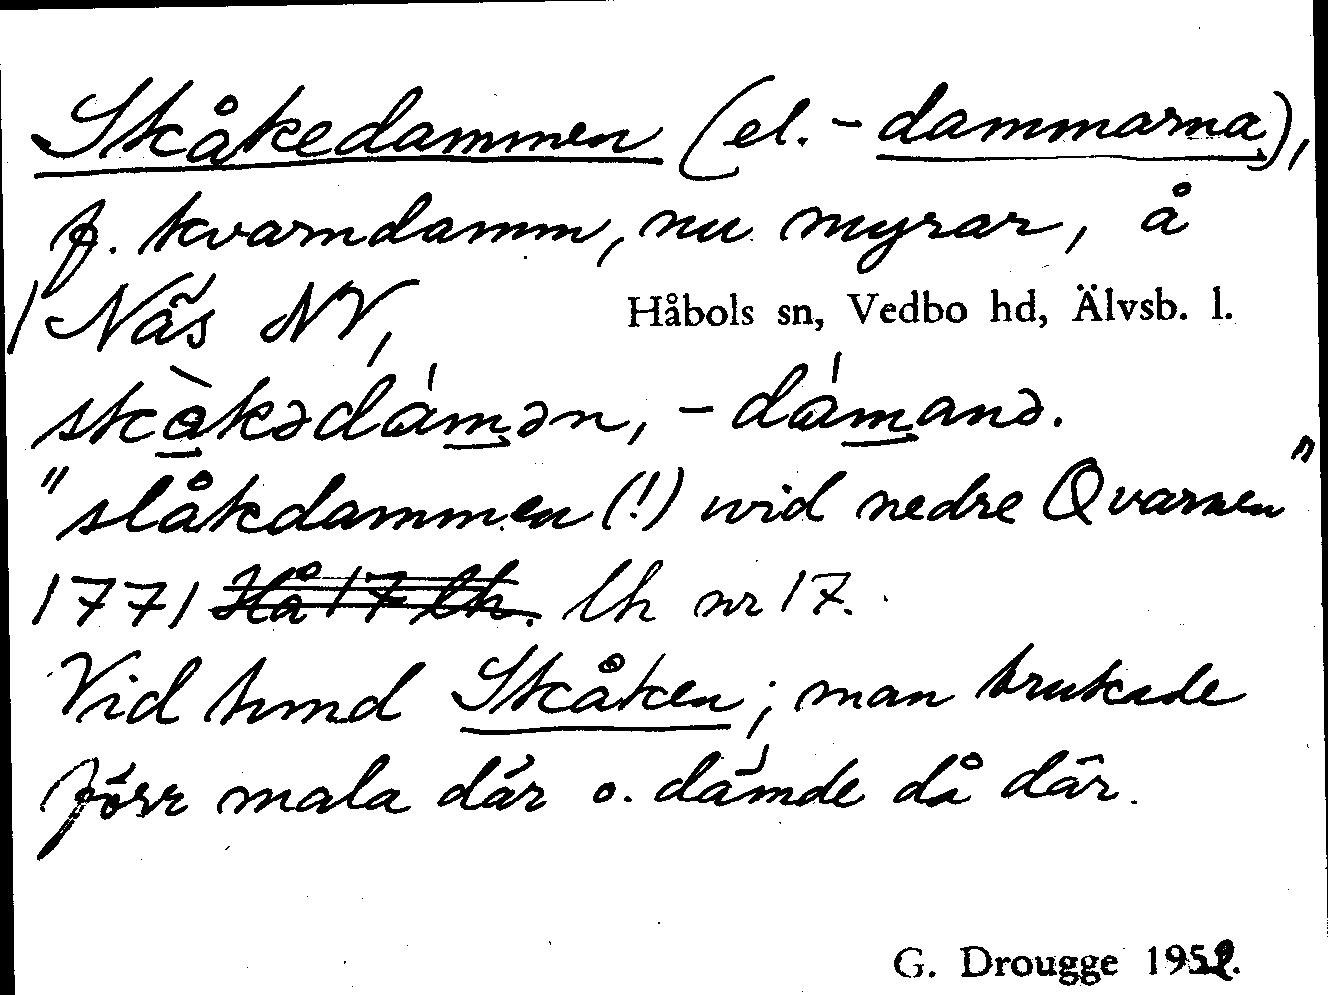 Skåkedammen (el. -dammarna),
f. kvarndamm, nu myrar, å
/ Näs NV,
Håbols sn, Vedbo hd, Älvsb. l.
skàkədámən, -dámanə.
"slåkdammen (!) wid nedre Qvarnen"
1771 Hå 17 lh. lh nr 17.
Vid tund Skåken; man brukade
förr mala där o. dämde då där.
G. Drougge 1952.